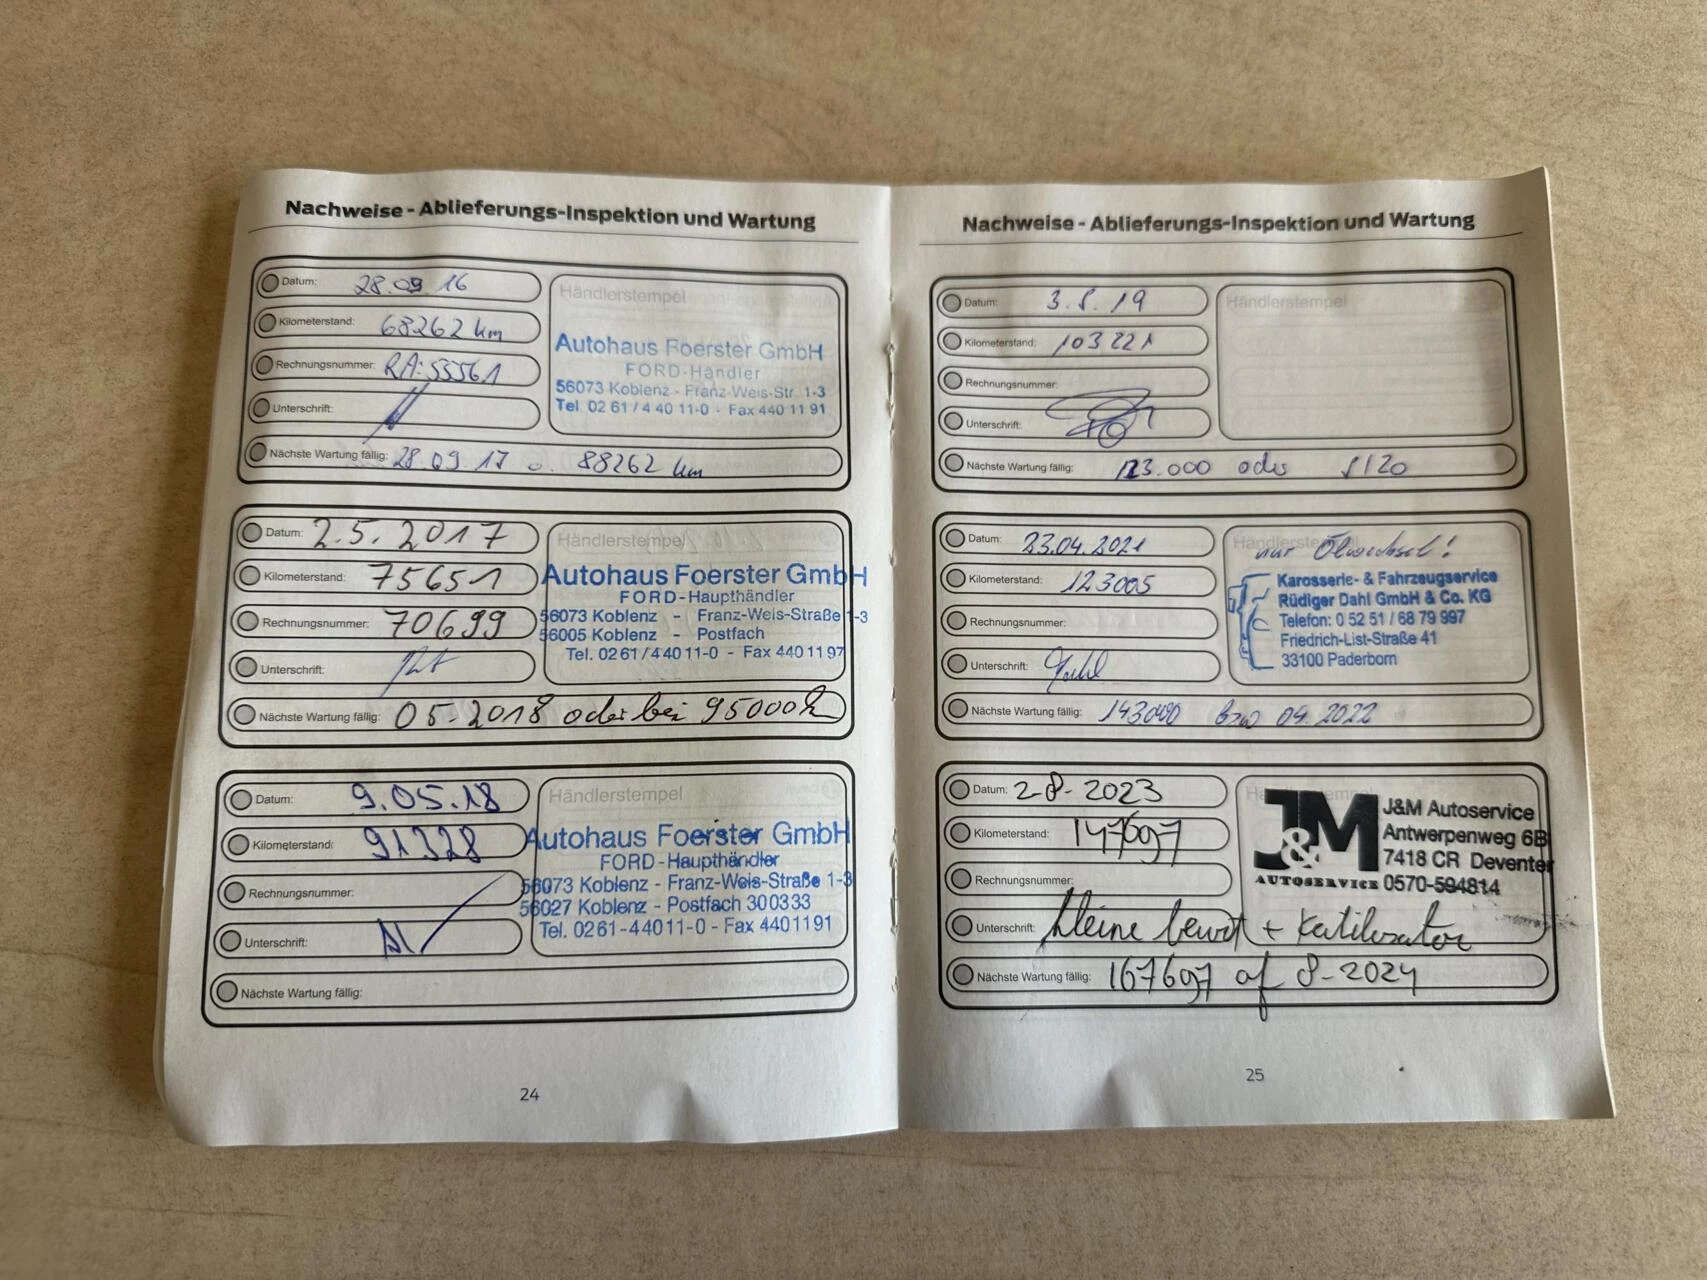 Nachweise - Ablieferungs-Inspektion und Wartung
Datum: 28.09.16
Kilometerstand: 68262 km
Rechnungsnummer: RA:53561
Unterschrift:
Nächste Wartung fällig: 28.09.17 o. 88262 km
Händlerstempel
Autohaus Foerster GmbH
FORD-Händler
56073 Koblenz - Franz-Weis-Str. 1-3
Tel. 02 61 / 4 40 11-0 - Fax 440 11 91
Datum: 2.5.2017
Kilometerstand: 75651
Rechnungsnummer: 70699
Unterschrift:
Nächste Wartung fällig: 05-2018 oder bei 95000
Händlerstempel
Autohaus Foerster GmbH
FORD-Haupthändler
56073 Koblenz - Franz-Weis-Straße 1-3
56005 Koblenz - Postfach
Tel. 02 61 / 4 40 11-0 - Fax 440 11 97
Datum: 9.05.18
Kilometerstand: 91328
Rechnungsnummer:
Unterschrift:
Nächste Wartung fällig:
Händlerstempel
Autohaus Foerster GmbH
FORD-Haupthändler
56073 Koblenz - Franz-Weis-Straße 1-3
56027 Koblenz - Postfach 300333
Tel. 0261-44011-0 - Fax 4401191
24
Nachweise - Ablieferungs-Inspektion und Wartung
Datum: 3.5.19
Kilometerstand: 103221
Rechnungsnummer:
Unterschrift:
Nächste Wartung fällig: 123.000 oder 5/20
Händlerstempel
Datum: 23.04.2021
Kilometerstand: 123005
Rechnungsnummer:
Unterschrift:
Nächste Wartung fällig: 143000 bzw 04.2022
Händlerstempel
nur Ölwechsel!
Karosserie- & Fahrzeugservice
Rüdiger Dahl GmbH & Co. KG
Telefon: 0 52 51 / 68 79 997
Friedrich-List-Straße 41
33100 Paderborn
Datum: 2-8-2023
Kilometerstand: 147697
Rechnungsnummer:
Unterschrift: kleine beurt + Katilisator
Nächste Wartung fällig: 167697 of 8-2024
J&M
AUTOSERVICE
J&M Autoservice
Antwerpenweg 6B
7418 CR Deventer
0570-594814
25